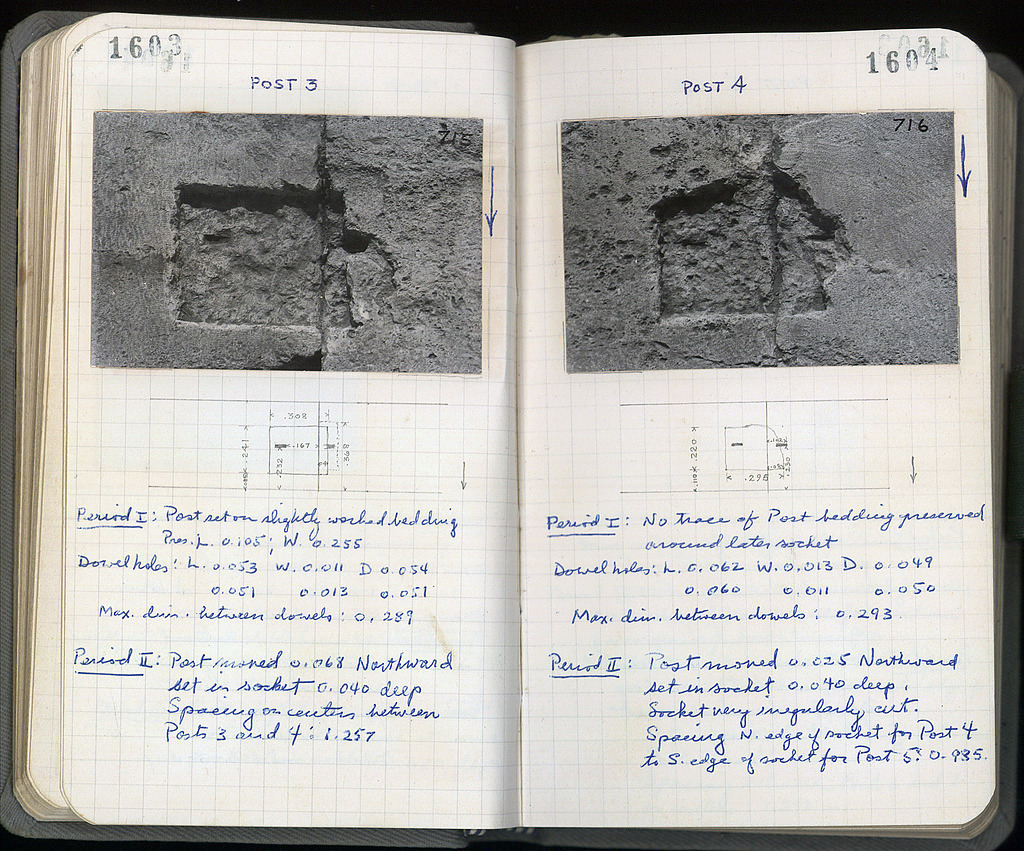 1603
POST 3
715
.302
.241
.167
.232
.368
Period I: Post set on slightly worked bedding
Pres. L. 0.105; W. 0.255
Dowel holes: L. 0.053 W. 0.011 D 0.054
0.051 0.013 0.051
Max. dim. between dowels: 0.289
Period II: Post moved 0.068 Northward
set in socket 0.040 deep
Spacing on centers between
Posts 3 and 4: 1.257
1604
POST 4
716
.220
.110
.230
.295
Period I: No trace of Post bedding preserved
around later socket
Dowel holes: L. 0.062 W. 0.013 D. 0.049
0.060 0.011 0.050
Max. dim. between dowels: 0.293
Period II: Post moved 0.025 Northward
set in socket 0.040 deep.
Socket very irregularly cut.
Spacing N. edge of socket for Post 4
to S. edge of socket for Post 5: 0.935.